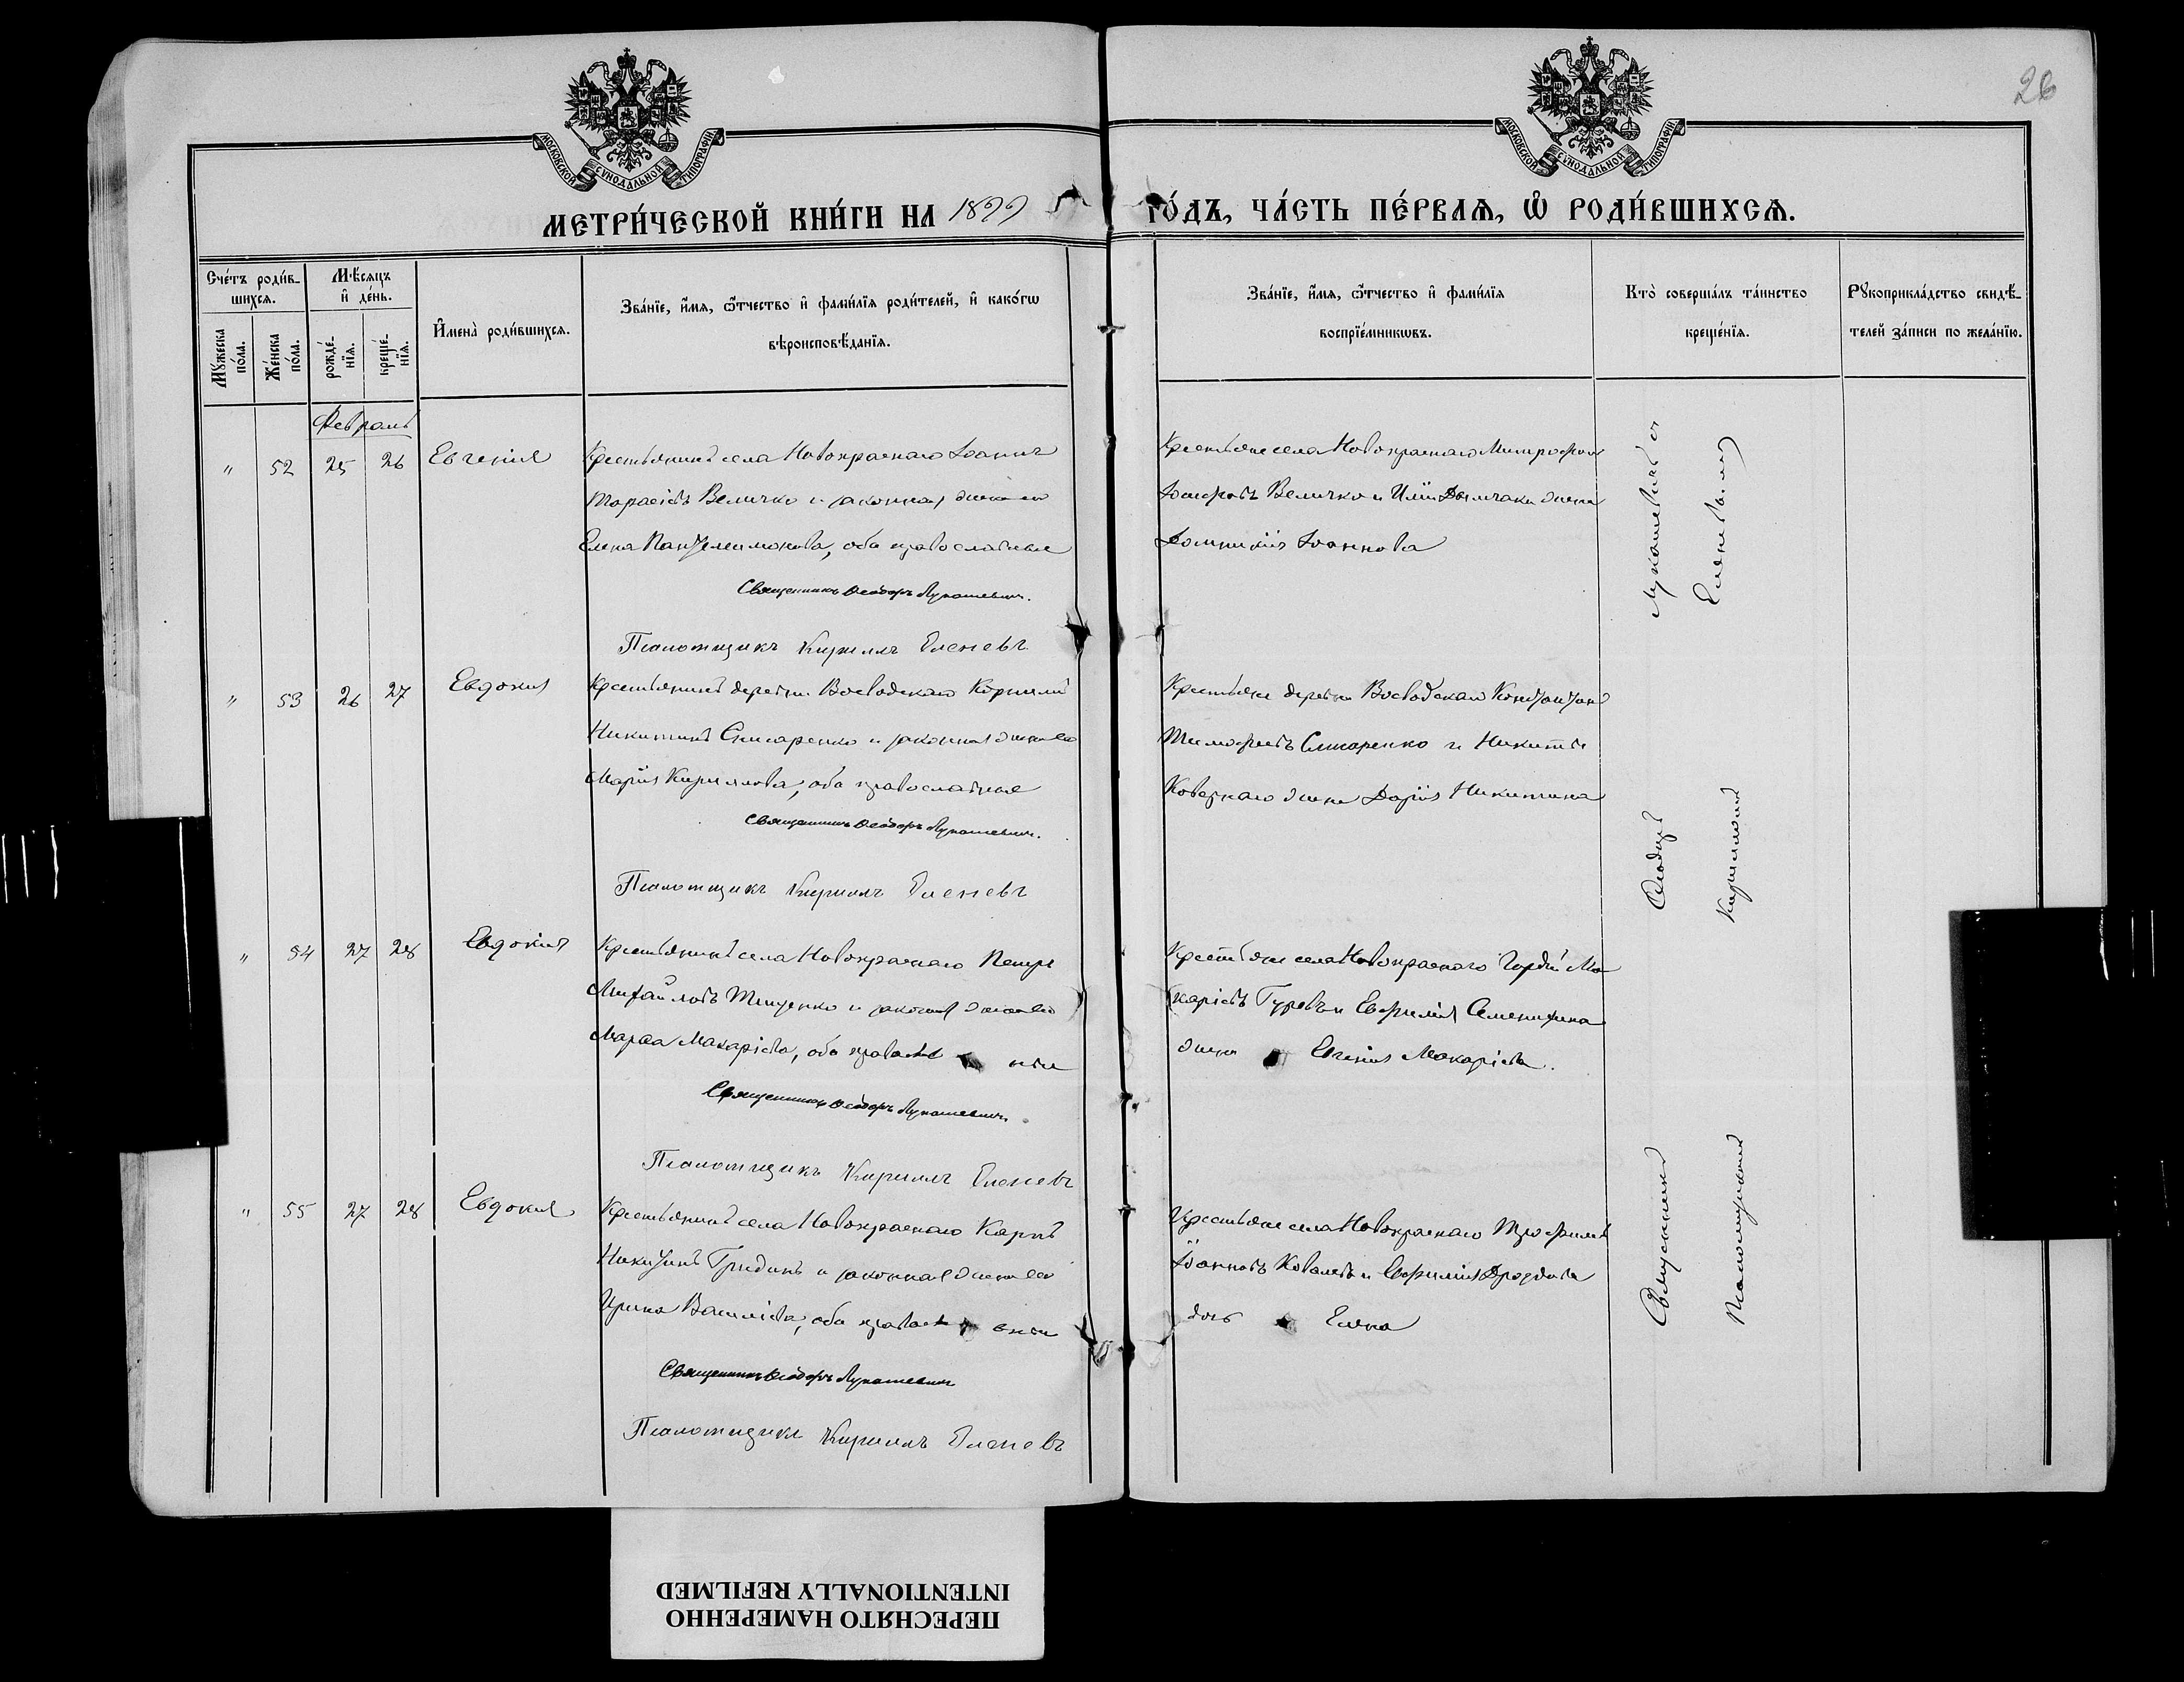 26
МОСКОВСКОЙ СѴНОДАЛЬНОЙ ТИПОГРАФІИ
МОСКОВСКОЙ СѴНОДАЛЬНОЙ ТИПОГРАФІИ
МЕТРИ́ЧЕСКОЙ КНИ́ГИ НА 1899 ГО́ДЪ, ЧА́СТЬ ПЕ́РВАѦ, Ѡ҆ РОДИ́ВШИХСѦ.
Сче́тъ роди́в-
шихсѧ.
Мꙋ́жеска
по́ла.
Же́нска
по́ла.
Мѣ́сѧцъ
и҆ де́нь.
рожде́-
нїѧ.
креще́-
нїѧ.
И҆мена̀ роди́вшихсѧ.
Зва́нїе, и҆́мѧ, ѻ҆́тчество и҆ фами́лїѧ роди́телей, и҆ како́гѡ
вѣроисповѣ́данїѧ.
Зва́нїе, и҆́мѧ, ѻ҆́тчество и҆ фами́лїѧ
воспрїе́мникѡвъ.
Кто̀ соверша́лъ та́инство
креще́нїѧ.
Рꙋкоприкла́дство свидѣ́-
телей за́писи по жела́нїю.
Февраль
" 52 25 26 Евгенія
Крестьянинъ села Новокраснаго Іоаннъ
Тарасіевъ Величко и законная жена его
Елена Пантелеимонова, оба православные
Священникъ Ѳеодоръ Лукашевич.
Псаломщикъ Кириллъ Еленевъ
Крестьяне села Новокраснаго Митрофанъ
Іосифовъ Величко и Иліи жена
Домникія Іоаннова
" 53 26 27 Евдокія
Крестьянинъ деревни Воеводскаго Корнилій
Никитинъ Слюсаренко и законная жена его
Марія Кириллова, оба православные
Священникъ Ѳеодоръ Лукашевич.
Псаломщикъ Кириллъ Еленевъ
Крестьяне деревни Воеводскаго Константинъ
Тимофеевъ Слюсаренко и Никиты
жена Дарія Никитина
" 54 27 28 Евдокія
Крестьянинъ села Новокраснаго Петръ
Михайловъ Тищенко и законная жена его
Марѳа Макаріева, оба правосл ные
Священникъ Ѳеодоръ Лукашевич.
Псаломщикъ Кириллъ Еленевъ
Крестьяне села Новокраснаго Гордій Ма
каріевъ Гуровъ и Евфимія
жена Евгенія Макаріева.
" 55 27 28 Евдокія
Крестьянинъ села Новокраснаго Карпъ
Никитинъ Гридинъ и законная жена его
Ирина Василіева, оба правосл вные
Священникъ Ѳеодоръ Лукашевич
Псаломщикъ Кириллъ Еленевъ
Крестьяне села Новокраснаго Трофимъ
Іоанновъ Ковалевъ и Евфимія Дроздова
дочь Елена
Священникъ Ѳеодоръ Лукашевичъ съ
Псаломщикомъ Кирилломъ Еленевымъ
ПЕРЕСНЯТО НАМЕРЕННО
INTENTIONALLY REFILMED